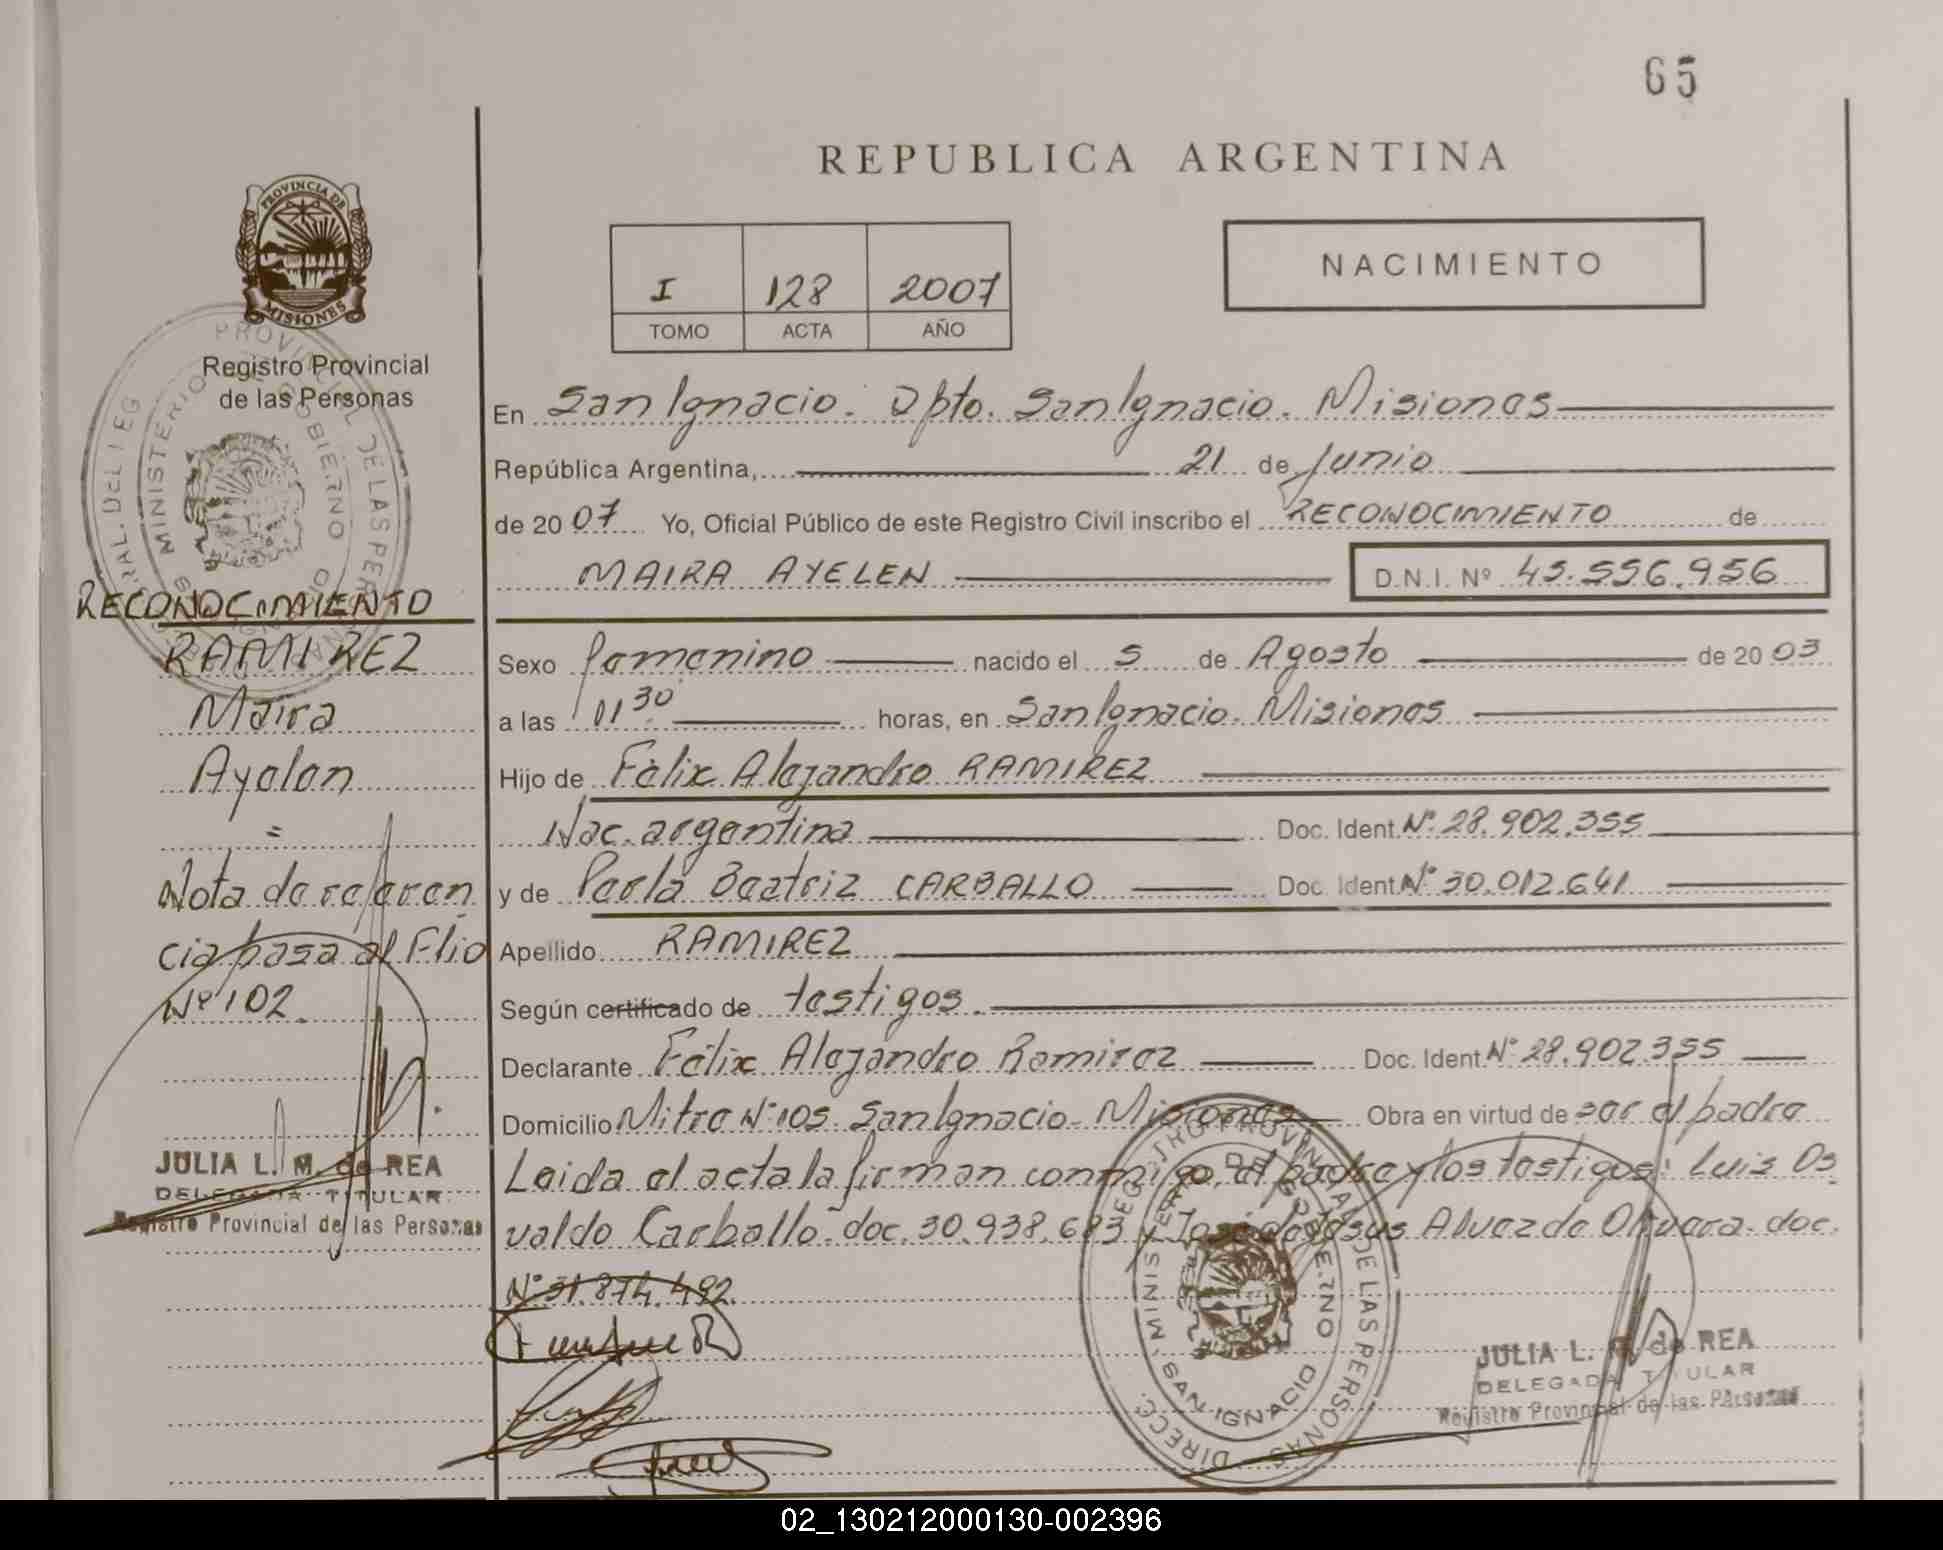 65
REPUBLICA ARGENTINA
PROVINCIA DE
MISIONES
I 128 2007
TOMO ACTA AÑO
NACIMIENTO
Registro Provincial
de las Personas
En San Ignacio. Dpto. San Ignacio. Misiones
República Argentina, 21 de Junio
de 2007 Yo, Oficial Público de este Registro Civil inscribo el RECONOCIMIENTO de
MAIRA AYELEN D.N.I. Nº 45.556.956
RECONOCIMIENTO
RAMIREZ
Maira
Ayelen
=
Nota de referen
cia pasa al Flio
Nº 102.
JULIA L. M. de REA
DELEGADA TITULAR
Registro Provincial de las Personas
Sexo femenino nacido el 5 de Agosto de 2003
a las 01 30 horas, en San Ignacio. Misiones
Hijo de Félix Alejandro RAMIREZ
Nac. argentina Doc. Ident. Nº 28.902.355
y de Perla Beatriz CARBALLO Doc. Ident. Nº 30.012.641
Apellido RAMIREZ
Según certificado de testigos.
Declarante Félix Alejandro Ramirez Doc. Ident. Nº 28.902.355
Domicilio Mitre Nº 105. San Ignacio. Misiones Obra en virtud de ser el padre
Leida el acta la firman conmigo, el padre y los testigos: Luis Os
valdo Carballo. doc. 30.938.683 y José de Jesus Alvez de Olivera. doc.
Nº 31.874.492.
MINISTERIO DE GOBIERNO
SAN IGNACIO
JULIA L. M. de REA
DELEGADA TITULAR
Registro Provincial de las Personas
02_130212000130-002396